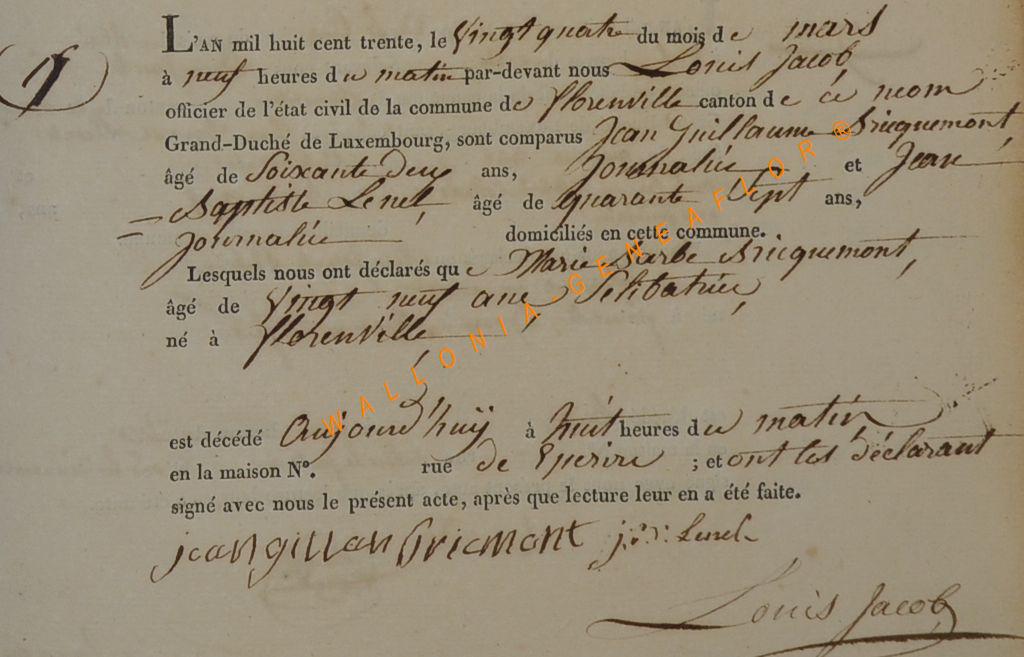 L'AN mil huit cent trente, le Vingt quatre du mois de mars
à neuf heures du matin par-devant nous Louis Jacob,
officier de l'état civil de la commune de Florenville canton de ce nom
Grand-Duché de Luxembourg, sont comparus Jean Guillaume Bricquemont,
âgé de Soixante deux ans, Journalié et Jean
Baptiste Lenel, âgé de quarante Sept ans,
Journalié domiciliés en cette commune.
Lesquels nous ont déclarés que Marie Barbe Bricquemont,
âgé de Vingt neuf ans Selibatrice,
né à Florenville,
est décédé Aujourd'huÿ à huit heures du matin,
en la maison N°. rue de ; et ont les déclarant
signé avec nous le présent acte, après que lecture leur en a été faite.
jean gillan bricmont j: b: Lenel
Louis Jacob
WALLONIA-GENEAFLOR®